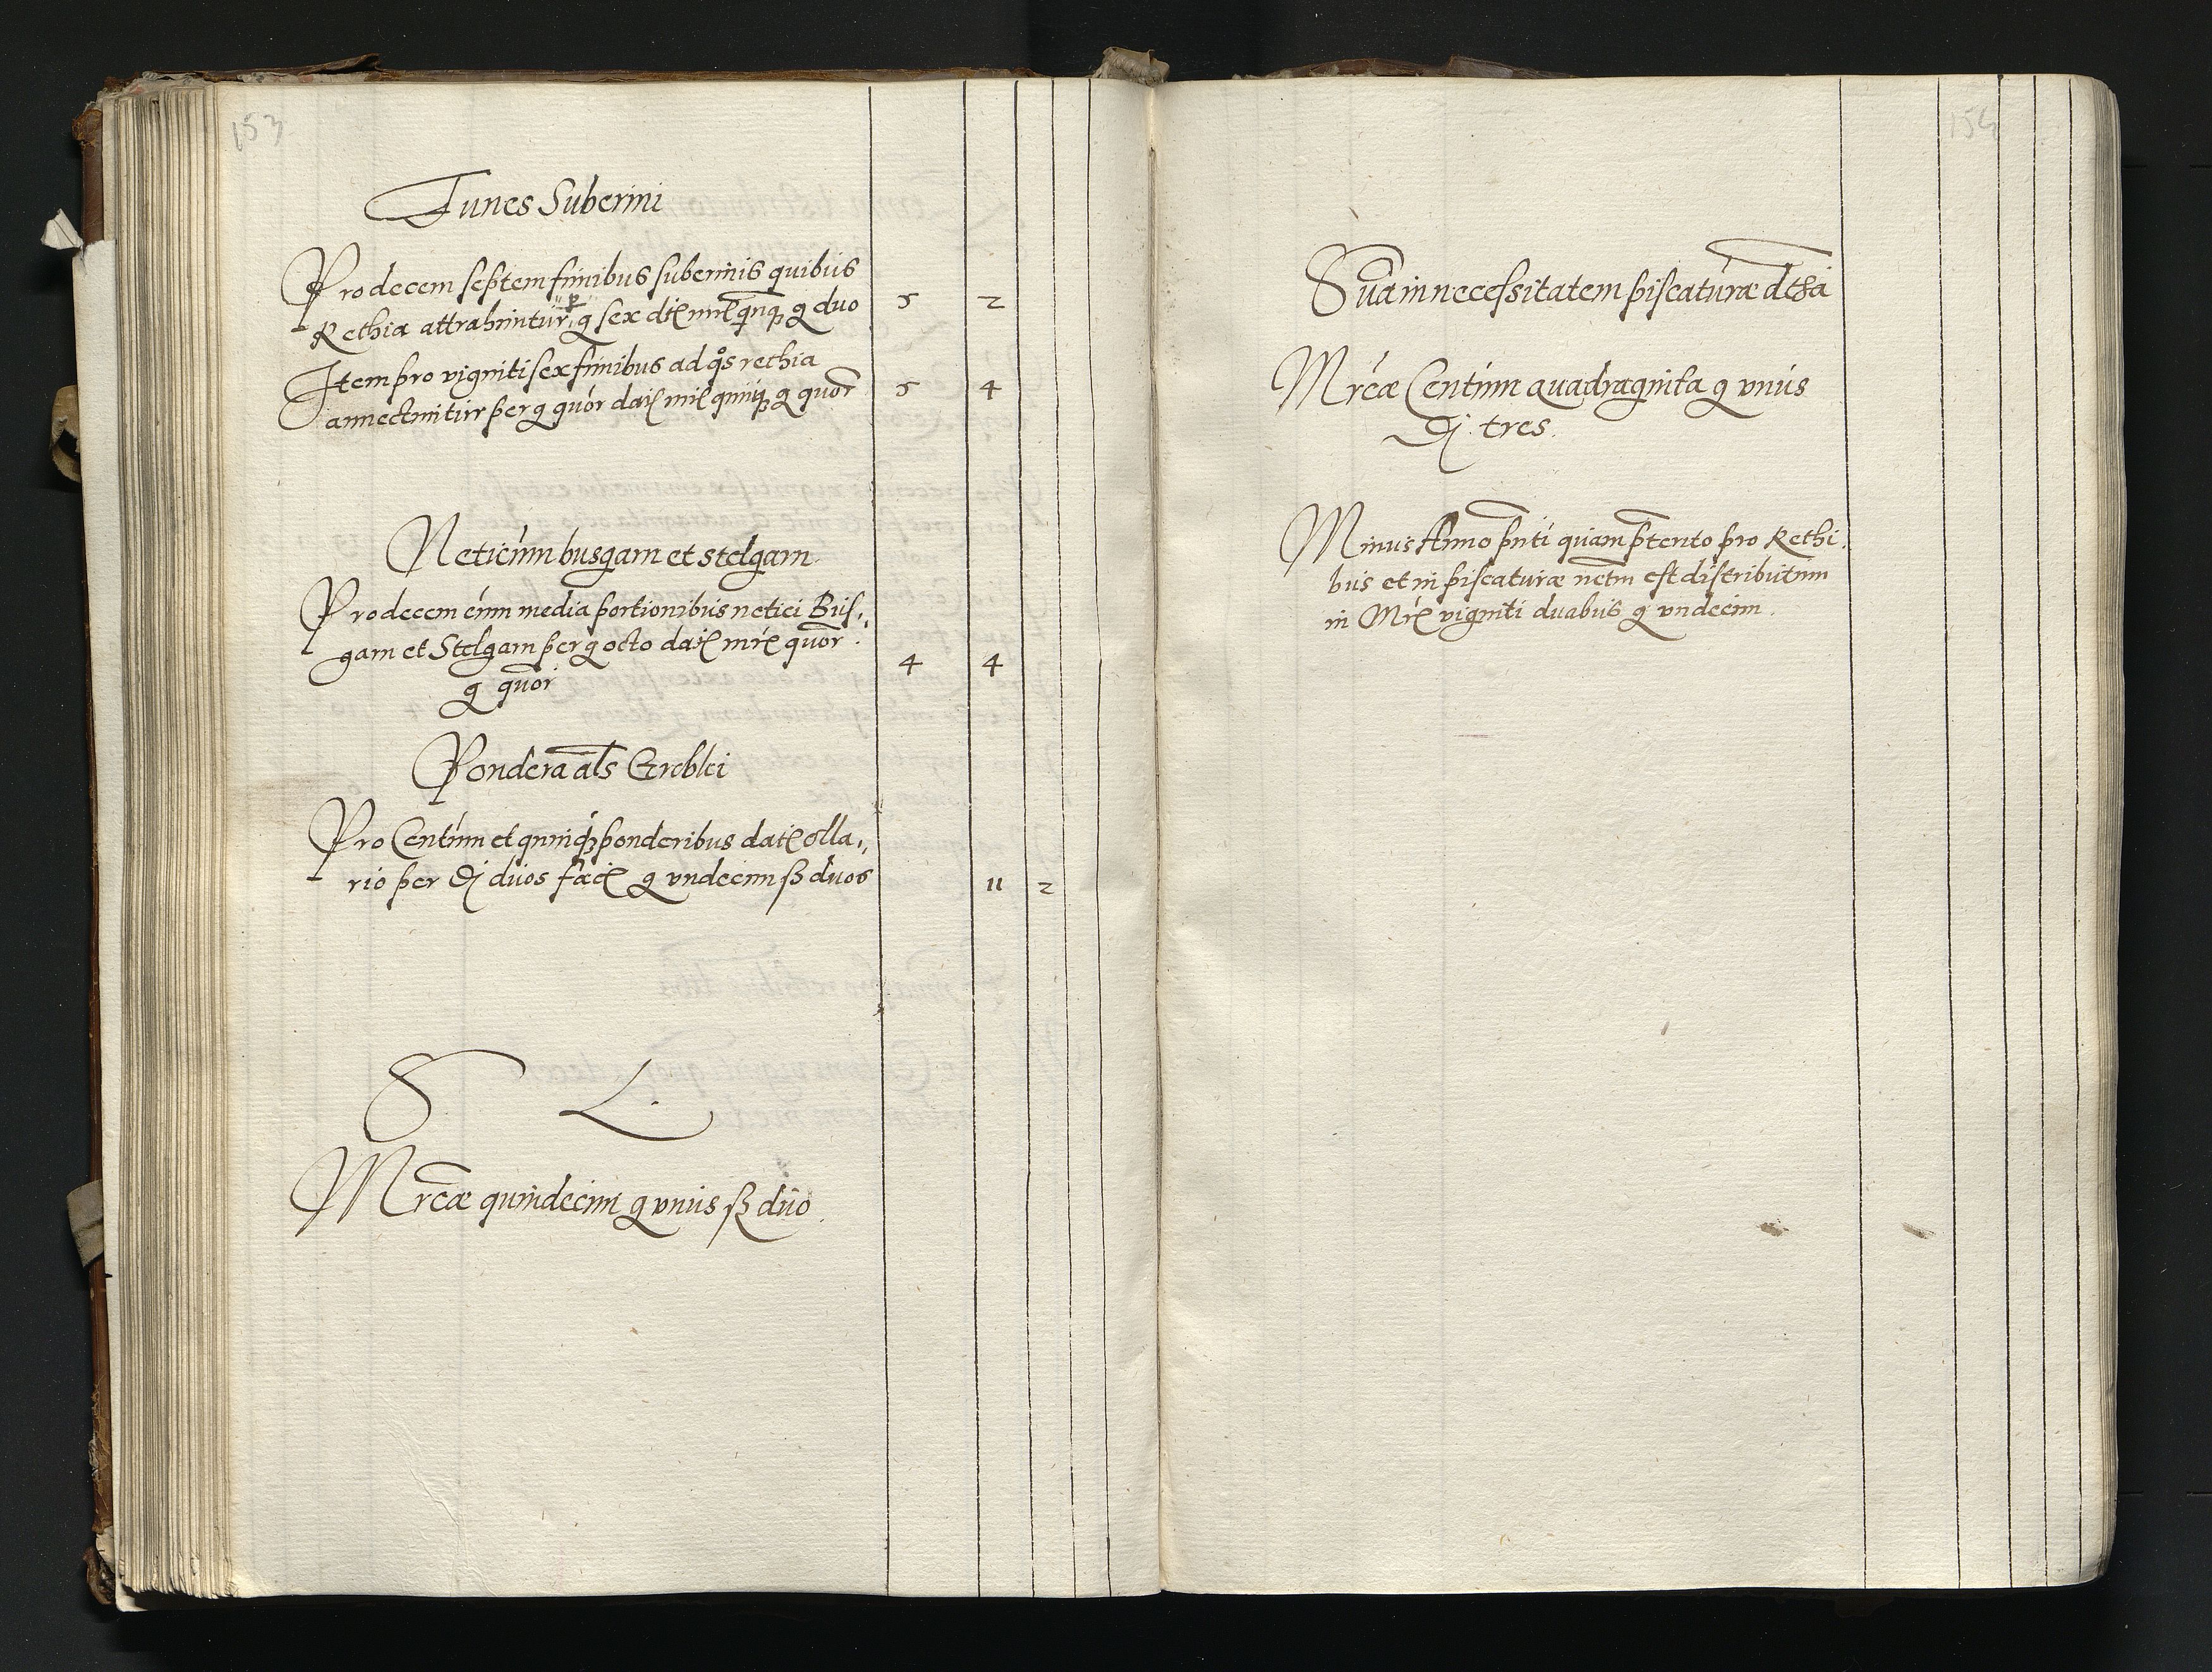 153
Funes Suberini
Pro decem septem funibus suberinis quibus
Rethia attrahuntur p g sex dť mrć quinq g duo 5 2
Item pro viginti sex funibus ad qos rethia
annectuntur per g quór daí mrć quinq g quor 5 4
Neticúm busgam et stelgam
Pro decem cúm media portionibus netici Bus„
gam et Stelgam per g octo daí mrć quor
g quor 4 4
Pondera als Greblei
Pro Centúm et quinq ponderibus daí olla„
rio per Đ duos facť g undecim ß duos 11 2
S L.
Mrcæ quindecim g vnus ß duo.
154
Sua in necessitatem piscaturæ
Mrcæ Centúm quadraginta g vnús
Đ. tres.
Minus Anno pnti quam ptento pro Rethi„
bus et in piscaturæ netm est distribútum
in Mrć viginti duabus g vndecim.